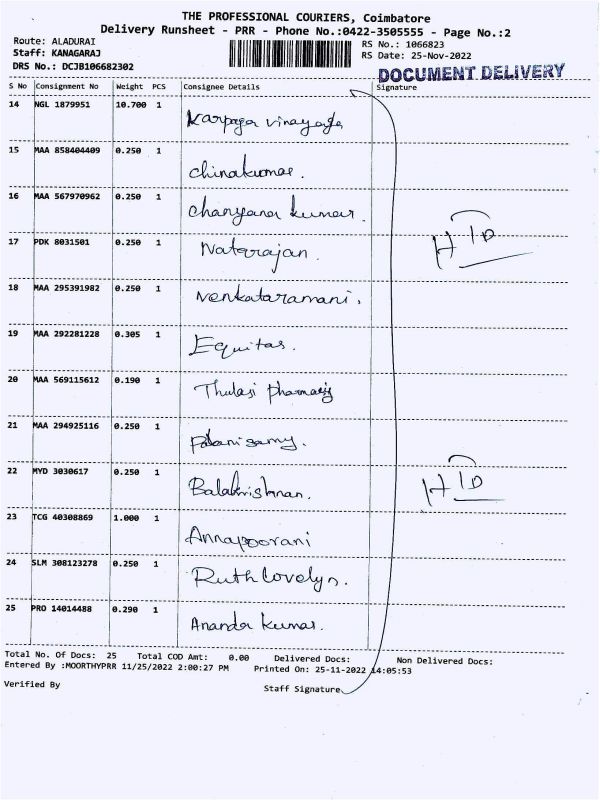 THE PROFESSIONAL COURIERS, Coimbatore
Delivery Runsheet - PRR - Phone No.:0422-3505555 - Page No.:2
Route: ALADURAI RS No.: 1066823
Staff: KANAGARAJ RS Date: 25-Nov-2022
DRS No.: DCJB106682302
DOCUMENT DELIVERY
S No Consignment No Weight PCS Consignee Details Signature
14 NGL 1879951 10.700 1
Karpaga vinayaga
15 MAA 858404409 0.250 1
chinakumar.
16 MAA 567970962 0.250 1
kumar.
17 PDK 8031501 0.250 1
Natarajan.
H-ID
18 MAA 295391982 0.250 1
Venkataramani.
19 MAA 292281228 0.305 1
Equitas.
20 MAA 569115612 0.190 1
Thulasi pharmacy
21 MAA 294925116 0.250 1
Palanisamy.
22 MYD 3030617 0.250 1
Balakrishnan.
H-ID
23 TCG 40308869 1.000 1
Annapoorani
24 SLM 308123278 0.250 1
Ruth lovelyn.
25 PRO 14014488 0.290 1
Ananda kumar.
Total No. Of Docs: 25 Total COD Amt: 0.00 Delivered Docs: Non Delivered Docs:
Entered By :MOORTHYPRR 11/25/2022 2:00:27 PM Printed On: 25-11-2022 14:05:53
Verified By Staff Signature